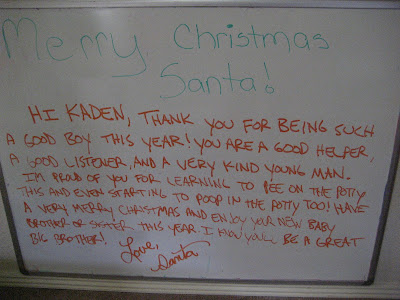 Merry Christmas
Santa!
HI KADEN, THANK YOU FOR BEING SUCH
A GOOD BOY THIS YEAR! YOU ARE A GOOD HELPER,
A GOOD LISTENER, AND A VERY KIND YOUNG MAN.
I'M PROUD OF YOU FOR LEARNING TO PEE ON THE POTTY
THIS AND EVEN STARTING TO POOP IN THE POTTY TOO! HAVE
A VERY MERRY CHRISTMAS AND ENJOY YOUR NEW BABY
BROTHER OR SISTER THIS YEAR. I KNOW YOU'LL BE A GREAT
BIG BROTHER!
Love,
Santa